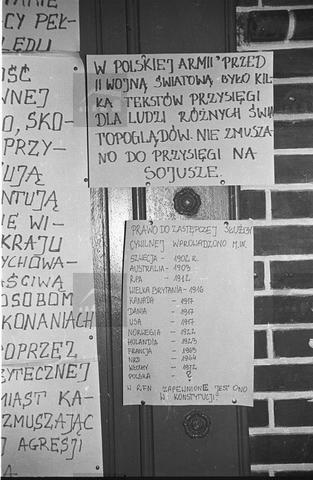 CY PEŁ-
LĘDU
W POLSKIEJ ARMII PRZED
II WOJNĄ ŚWIATOWĄ BYŁO KIL-
KA TEKSTÓW PRZYSIĘGI
DLA LUDZI RÓŻNYCH ŚWIA
TOPOGLĄDÓW. NIE ZMUSZA-
NO DO PRZYSIĘGI NA
SOJUSZE.
OŚĆ
WNEJ
O, SKO-
PRZY-
UJĄ
ENTUJĄ
IE WI-
KRAJU
YCHOWA-
EŚCIWĄ
OSOBOM
KONANIACH
POPRZEZ
YTECZNEJ
MIAST KA-
ZMUSZAJĄC
J AGRESJI
PRAWO DO ZASTĘPCZEJ SŁUŻBY
CYWILNEJ WPROWADZONO M.IN.
SZWECJA - 1902 R.
AUSTRALIA - 1903
RPA - 1912
WIELKA BRYTANIA - 1916
KANADA - 1917
DANIA - 1917
USA - 1917
NORWEGIA - 1922
HOLANDIA - 1923
FRANCJA - 1963
NRD - 1964
WŁOCHY - 1972
POLSKA - ?
W RFN ZAPEWNIONE JEST ONO
W KONSTYTUCJI!